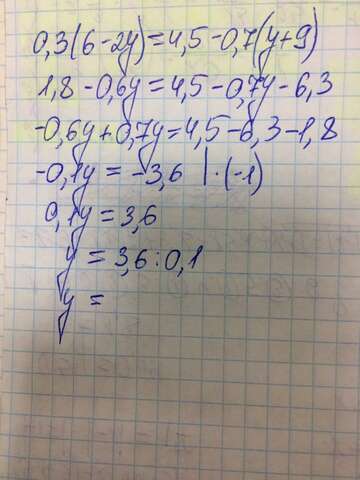 0,3(6-2y)=4,5-0,7(y+9)
1,8-0,6y=4,5-0,7y-6,3
-0,6y+0,7y=4,5-6,3-1,8
-0,1y=-3,6 |·(-1)
0,1y=3,6
y=3,6:0,1
y=